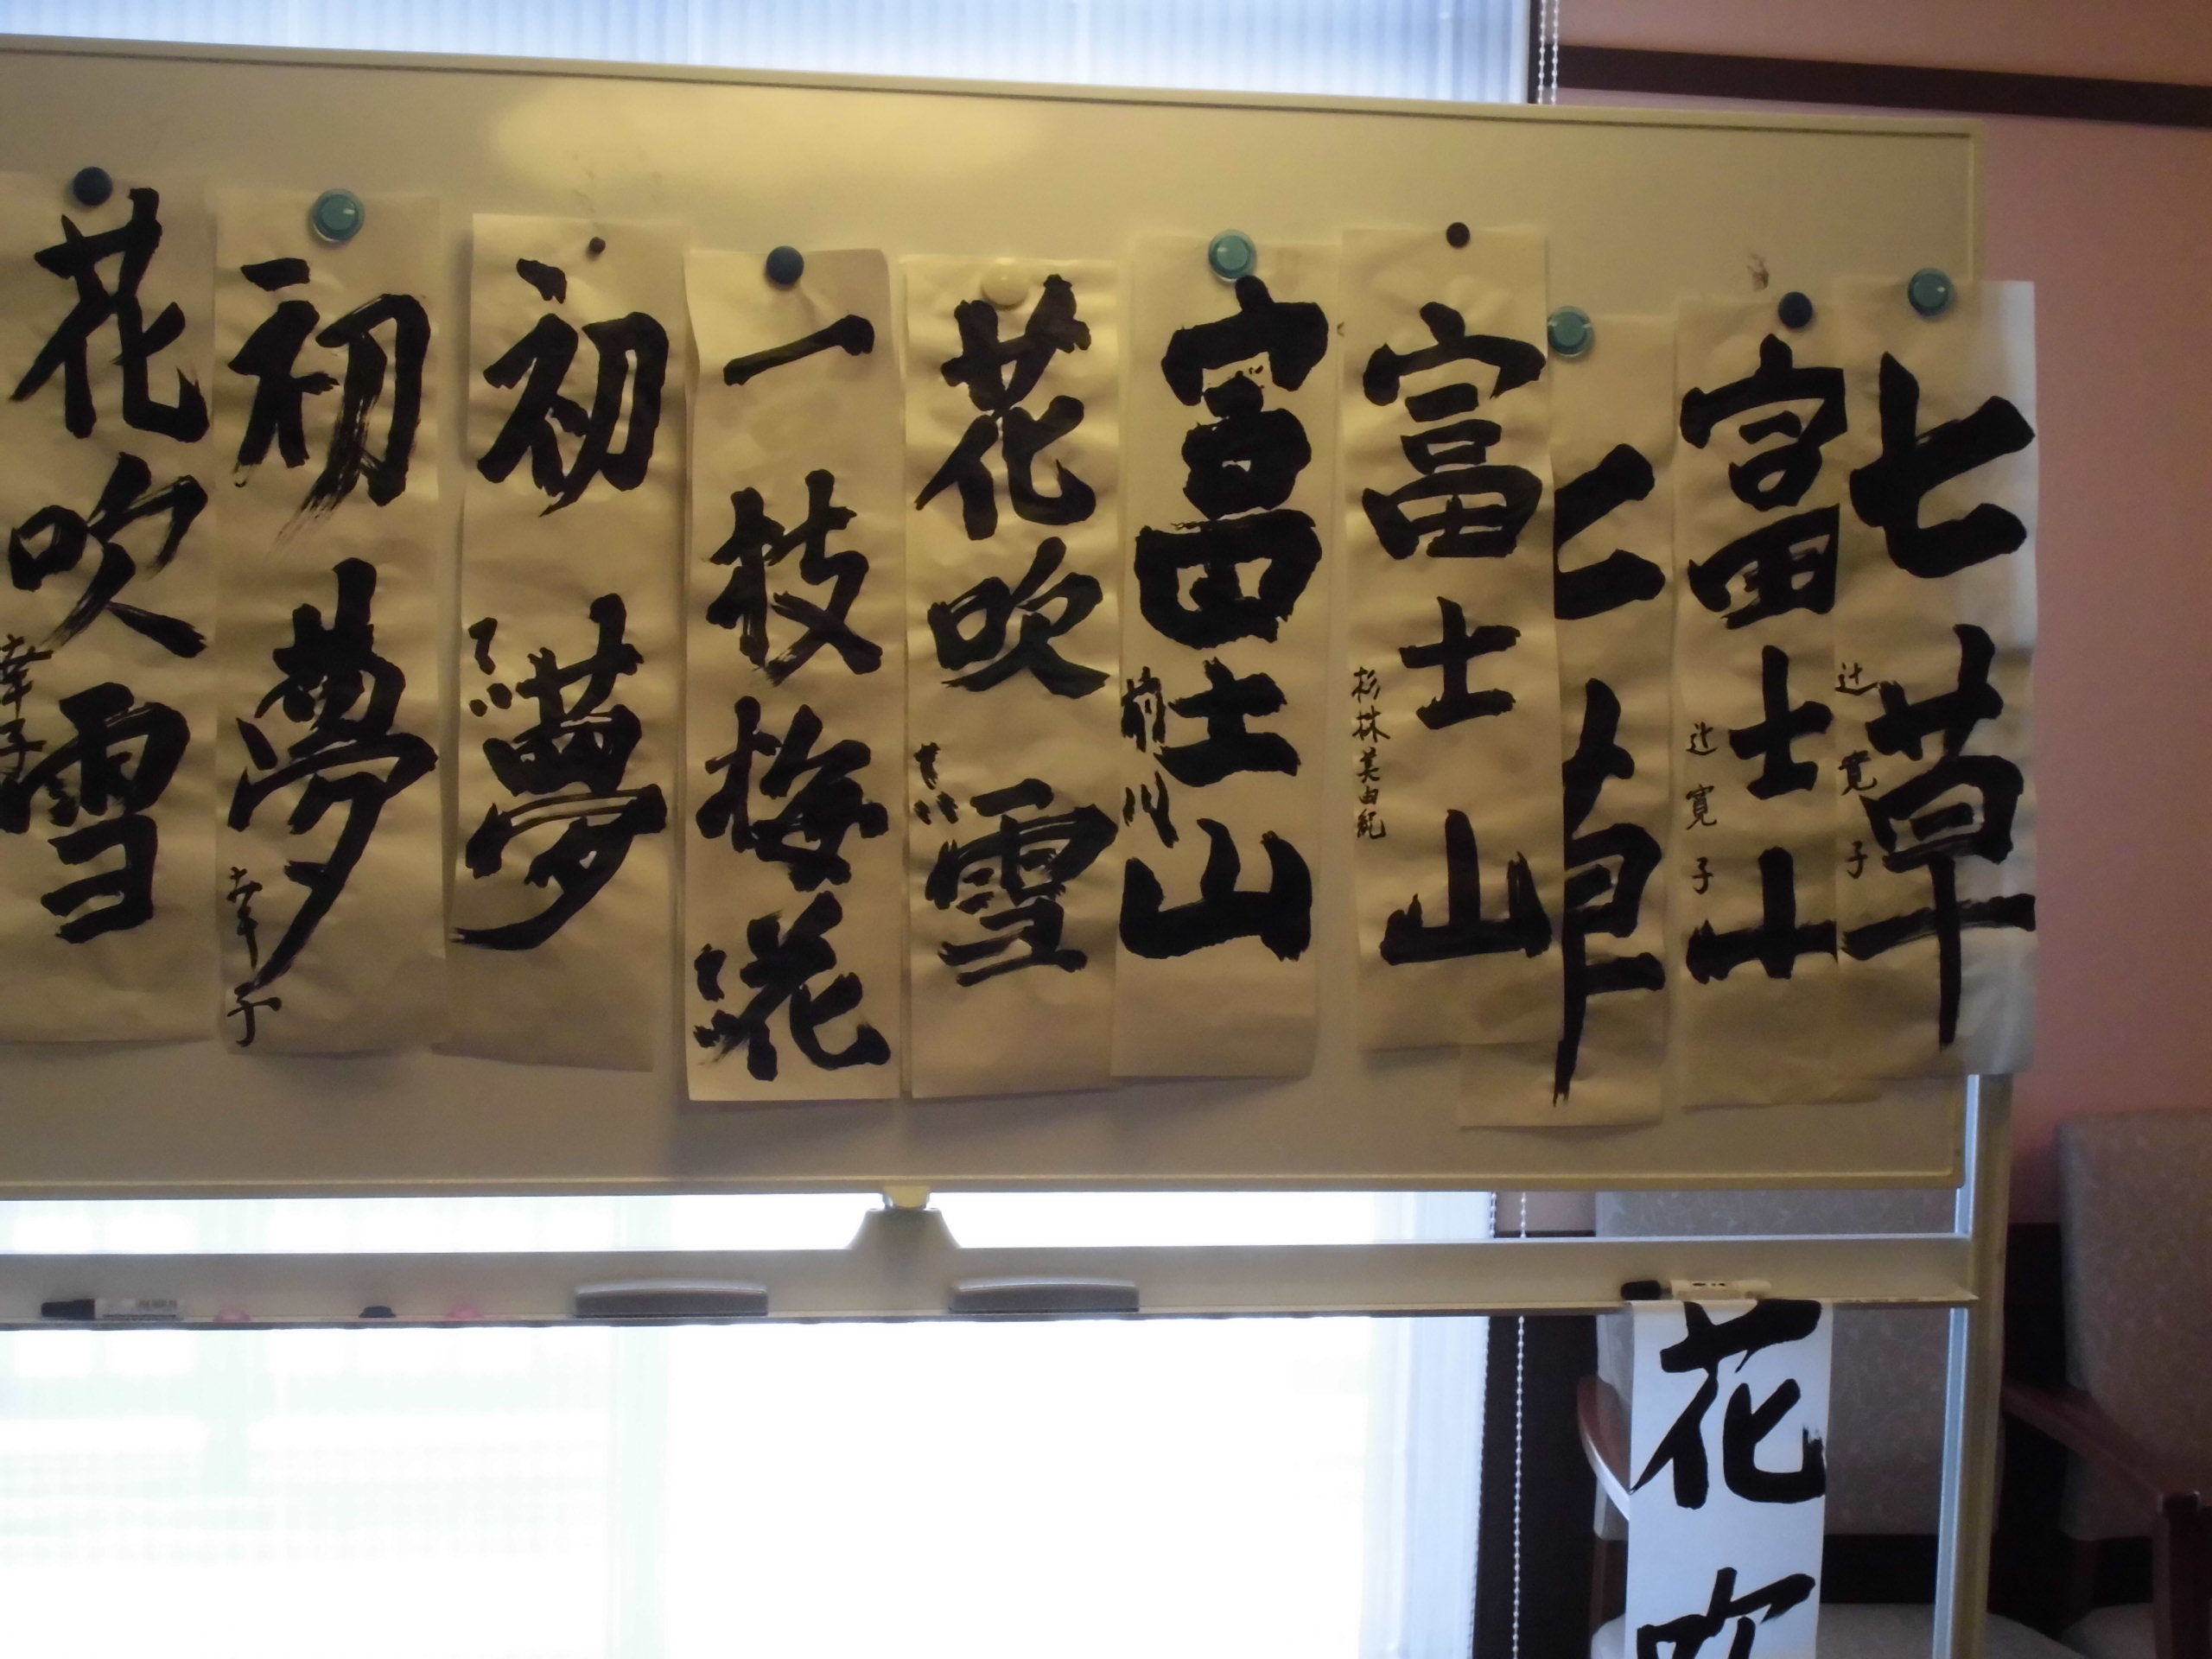 七草
辻寛子
富士山
辻寛子
七草
富士山
杉林美由紀
富士山
前川
花吹雪
一枝梅花
初夢
初夢
幸子
花吹雪
幸子
花吹